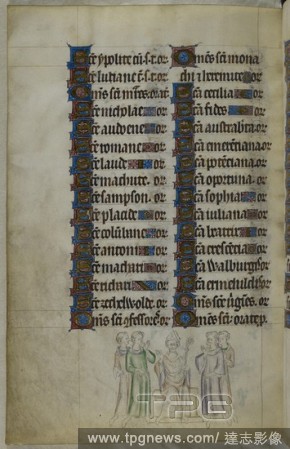 Sce ypolite cū s. t. or
Sce luciane c̄ s. t. or
Om̄s sc̄i mr̄es. orat
Sce nicholae or
Sce audoene or
Sce romane or
Sce laude or
Sce machute. or
Sce sampson. or
Sce placide or
Sce colūbane or
Sce antoni or
Sce machari or
Sce
Sce athelwolde. or
Om̄s sc̄i ꝯfessores or
Om̄es sc̄i mona
chi z heremite or
Sc̄a cecilia or
Sc̄a fides or
Sc̄a austraberta or
Sc̄a emerenciana. or
Sc̄a potenciana. or
Sc̄a oportuna. or
Sc̄a sophia or
Sc̄a iuliana or
Sc̄a beatrix or
Sc̄a crescencia or
Sc̄a Walburg or
Sc̄a ermenild or
Om̄s sc̄e uirgines. or
Om̄es sc̄i orate p.
TPG
www.tpgnews.com/ 達志影像